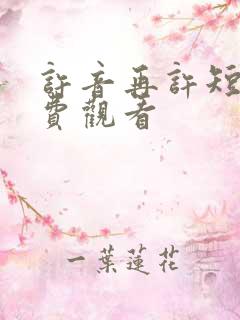 許音再許短
費觀看
一葉蓮花